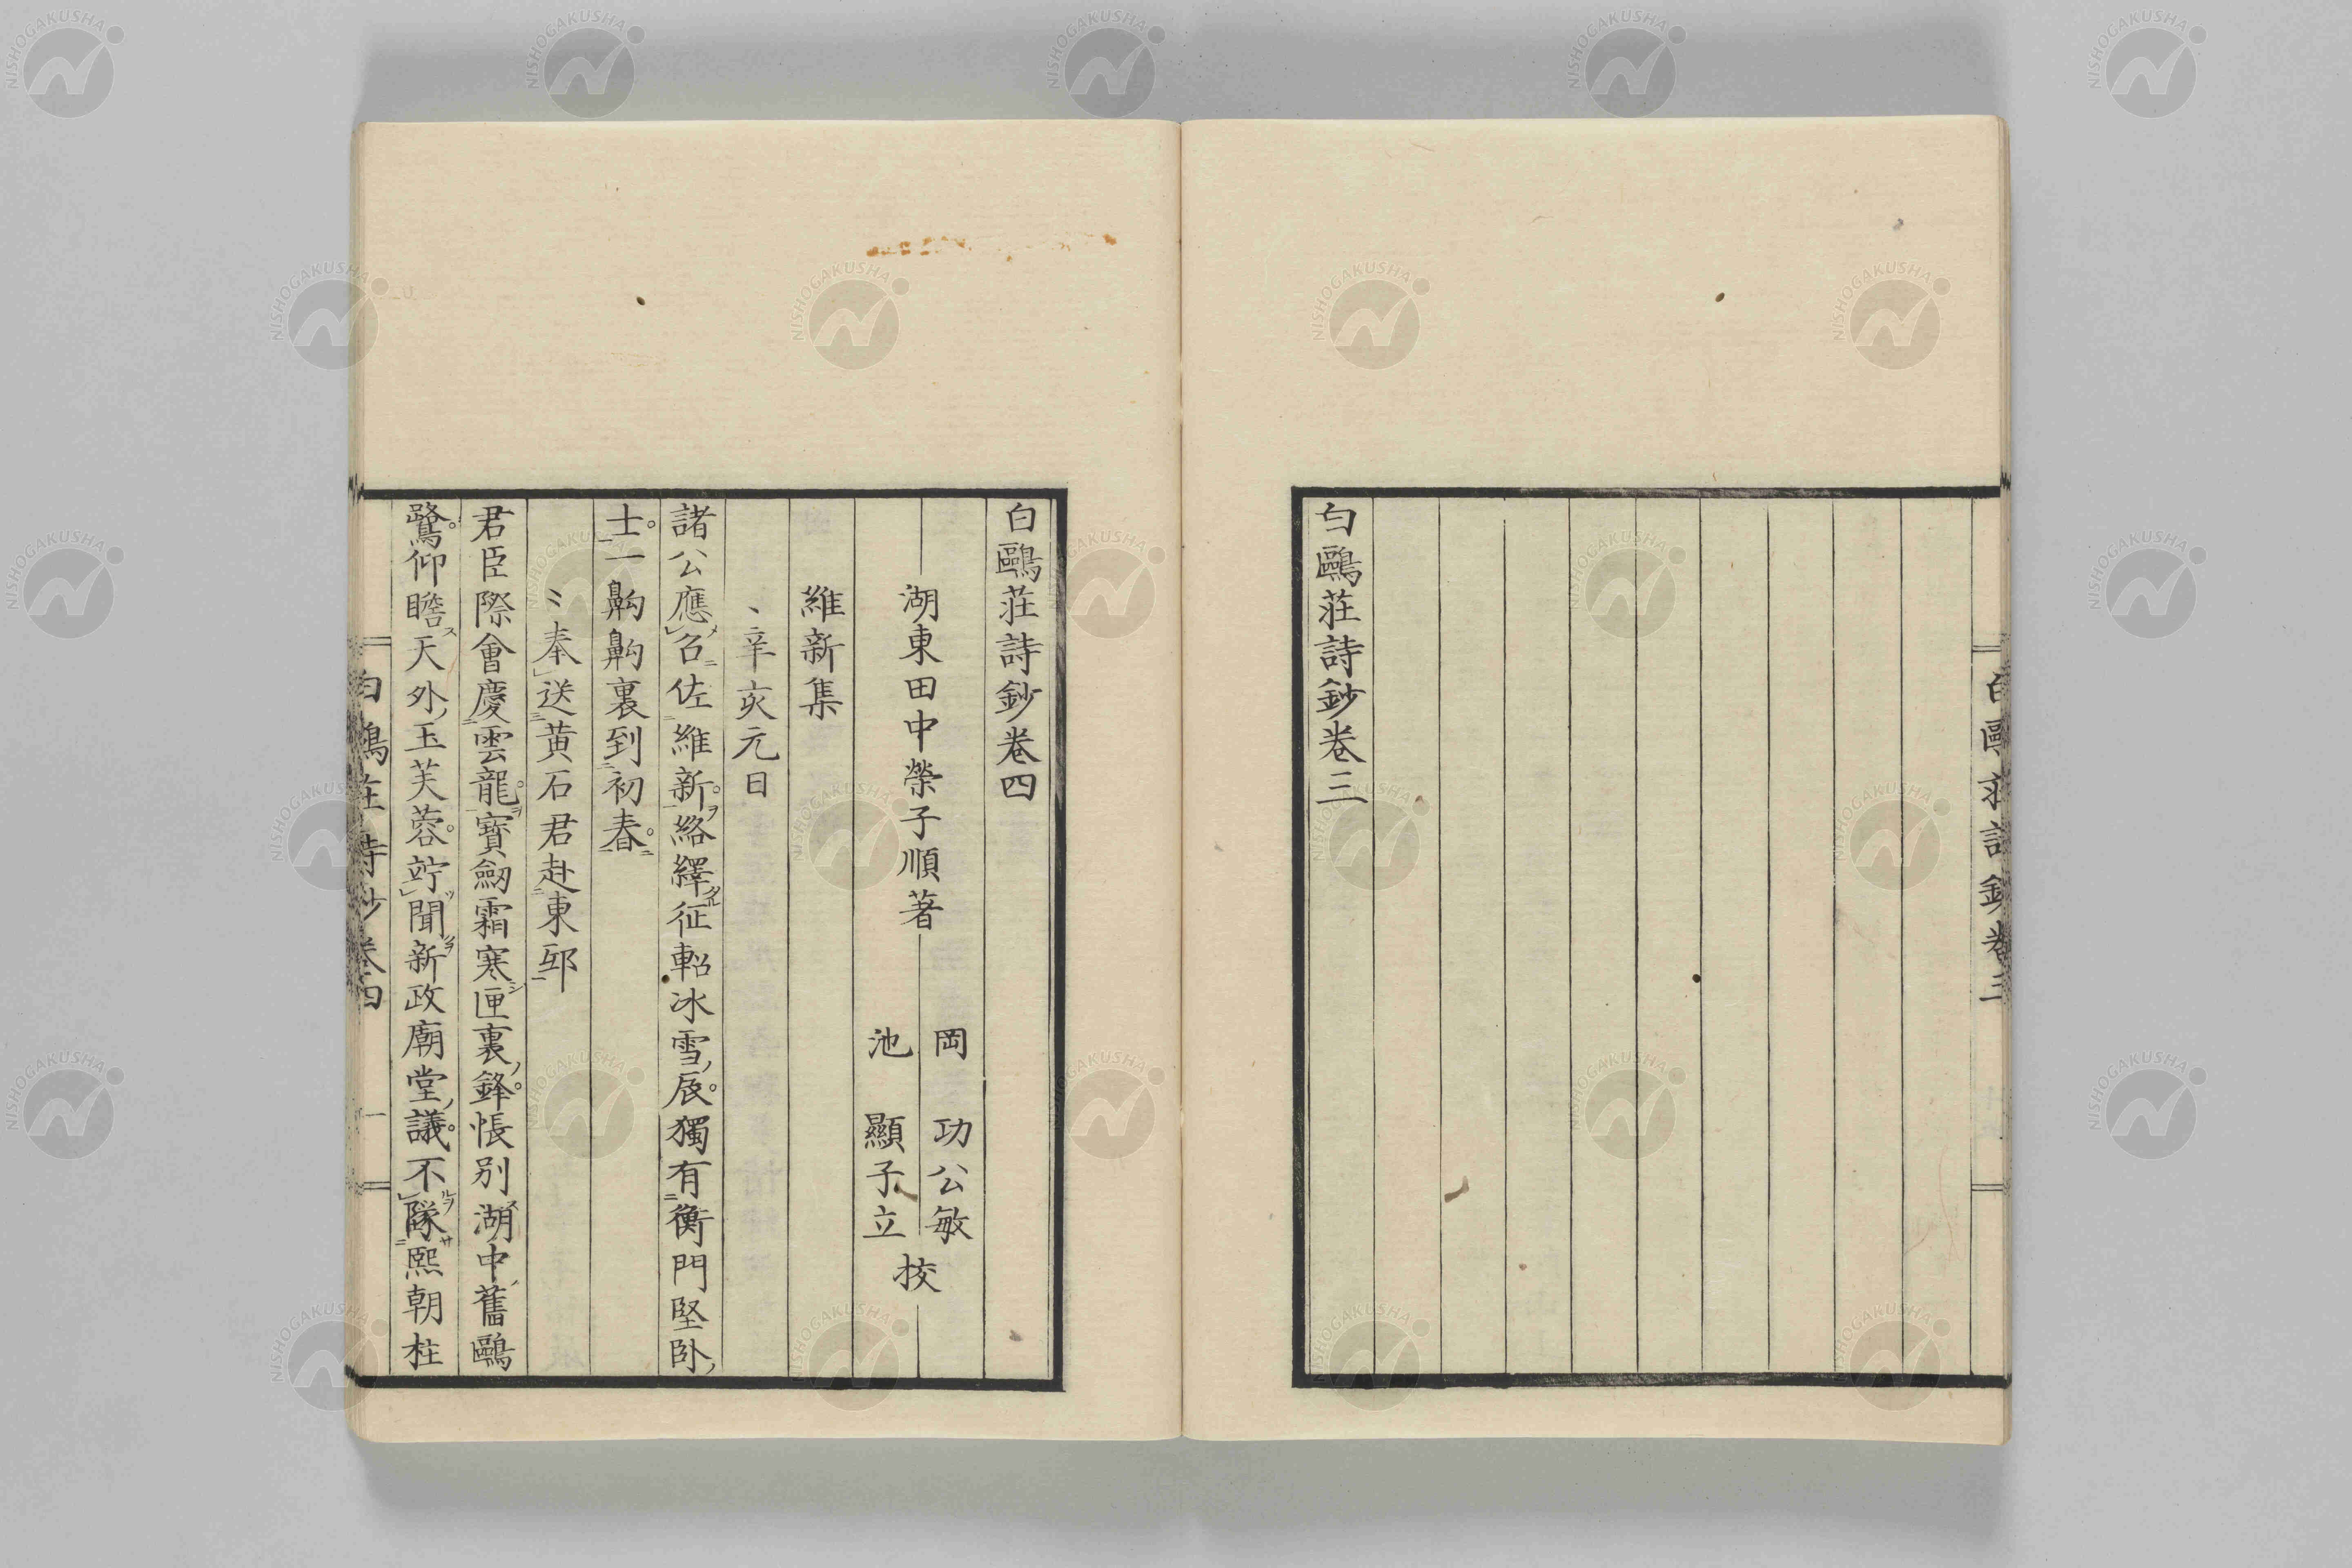 白鷗莊詩鈔卷三
白鷗莊詩鈔卷三
白鷗莊詩鈔卷四
湖東田中榮子順著
岡功公敏
池顯子立
挍
維新集
辛亥元日
諸公應召佐維新絡繹征軺冰雪辰獨有衡門堅臥
士一齁齁裏到初春
奉送黃石君赴東邸
君臣際會慶雲龍寶劒霜寒匣裏鋒悵別湖中舊鷗
鷺仰瞻天外玉芙蓉竚聞新政廟堂議不隊熙朝柱
白鷗莊詩鈔卷四
一
NISHOGAKUSHA